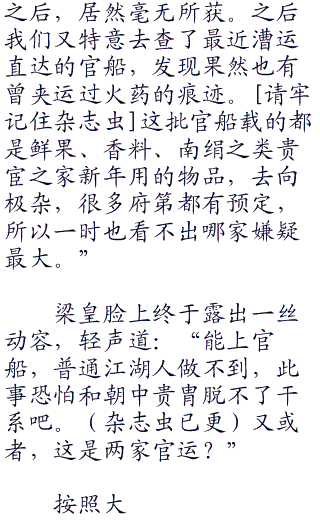 之后，居然毫无所获。之后
我们又特意去查了最近漕运
直达的官船，发现果然也有
曾夹运过火药的痕迹。[请牢
记住杂志虫]这批官船载的都
是鲜果、香料、南绢之类贵
宦之家新年用的物品，去向
极杂，很多府第都有预定，
所以一时也看不出哪家嫌疑
最大。”
梁皇脸上终于露出一丝
动容，轻声道：“能上官
船，普通江湖人做不到，此
事恐怕和朝中贵胄脱不了干
系吧。（杂志虫已更）又或
者，这是两家官运？”
按照大